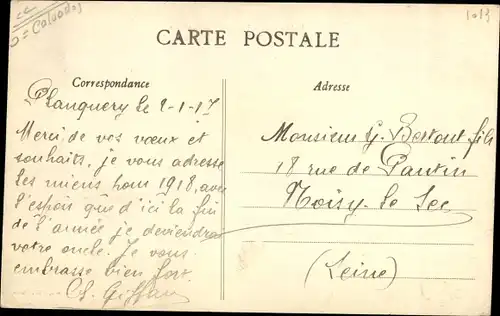 = Calvados
1013
CARTE POSTALE
Correspondance
Planquery le 2-1-17
Merci de vos vœux et
souhaits, je vous adresse
les miens pour 1918, avec
l'espoir que d'ici la fin
de l'année je deviendrai
votre oncle. Je vous
embrasse bien fort.
Ch.
Adresse
Monsieur G. Bertout fils
18 rue de Pantin
Noisy-le Sec
(Seine)